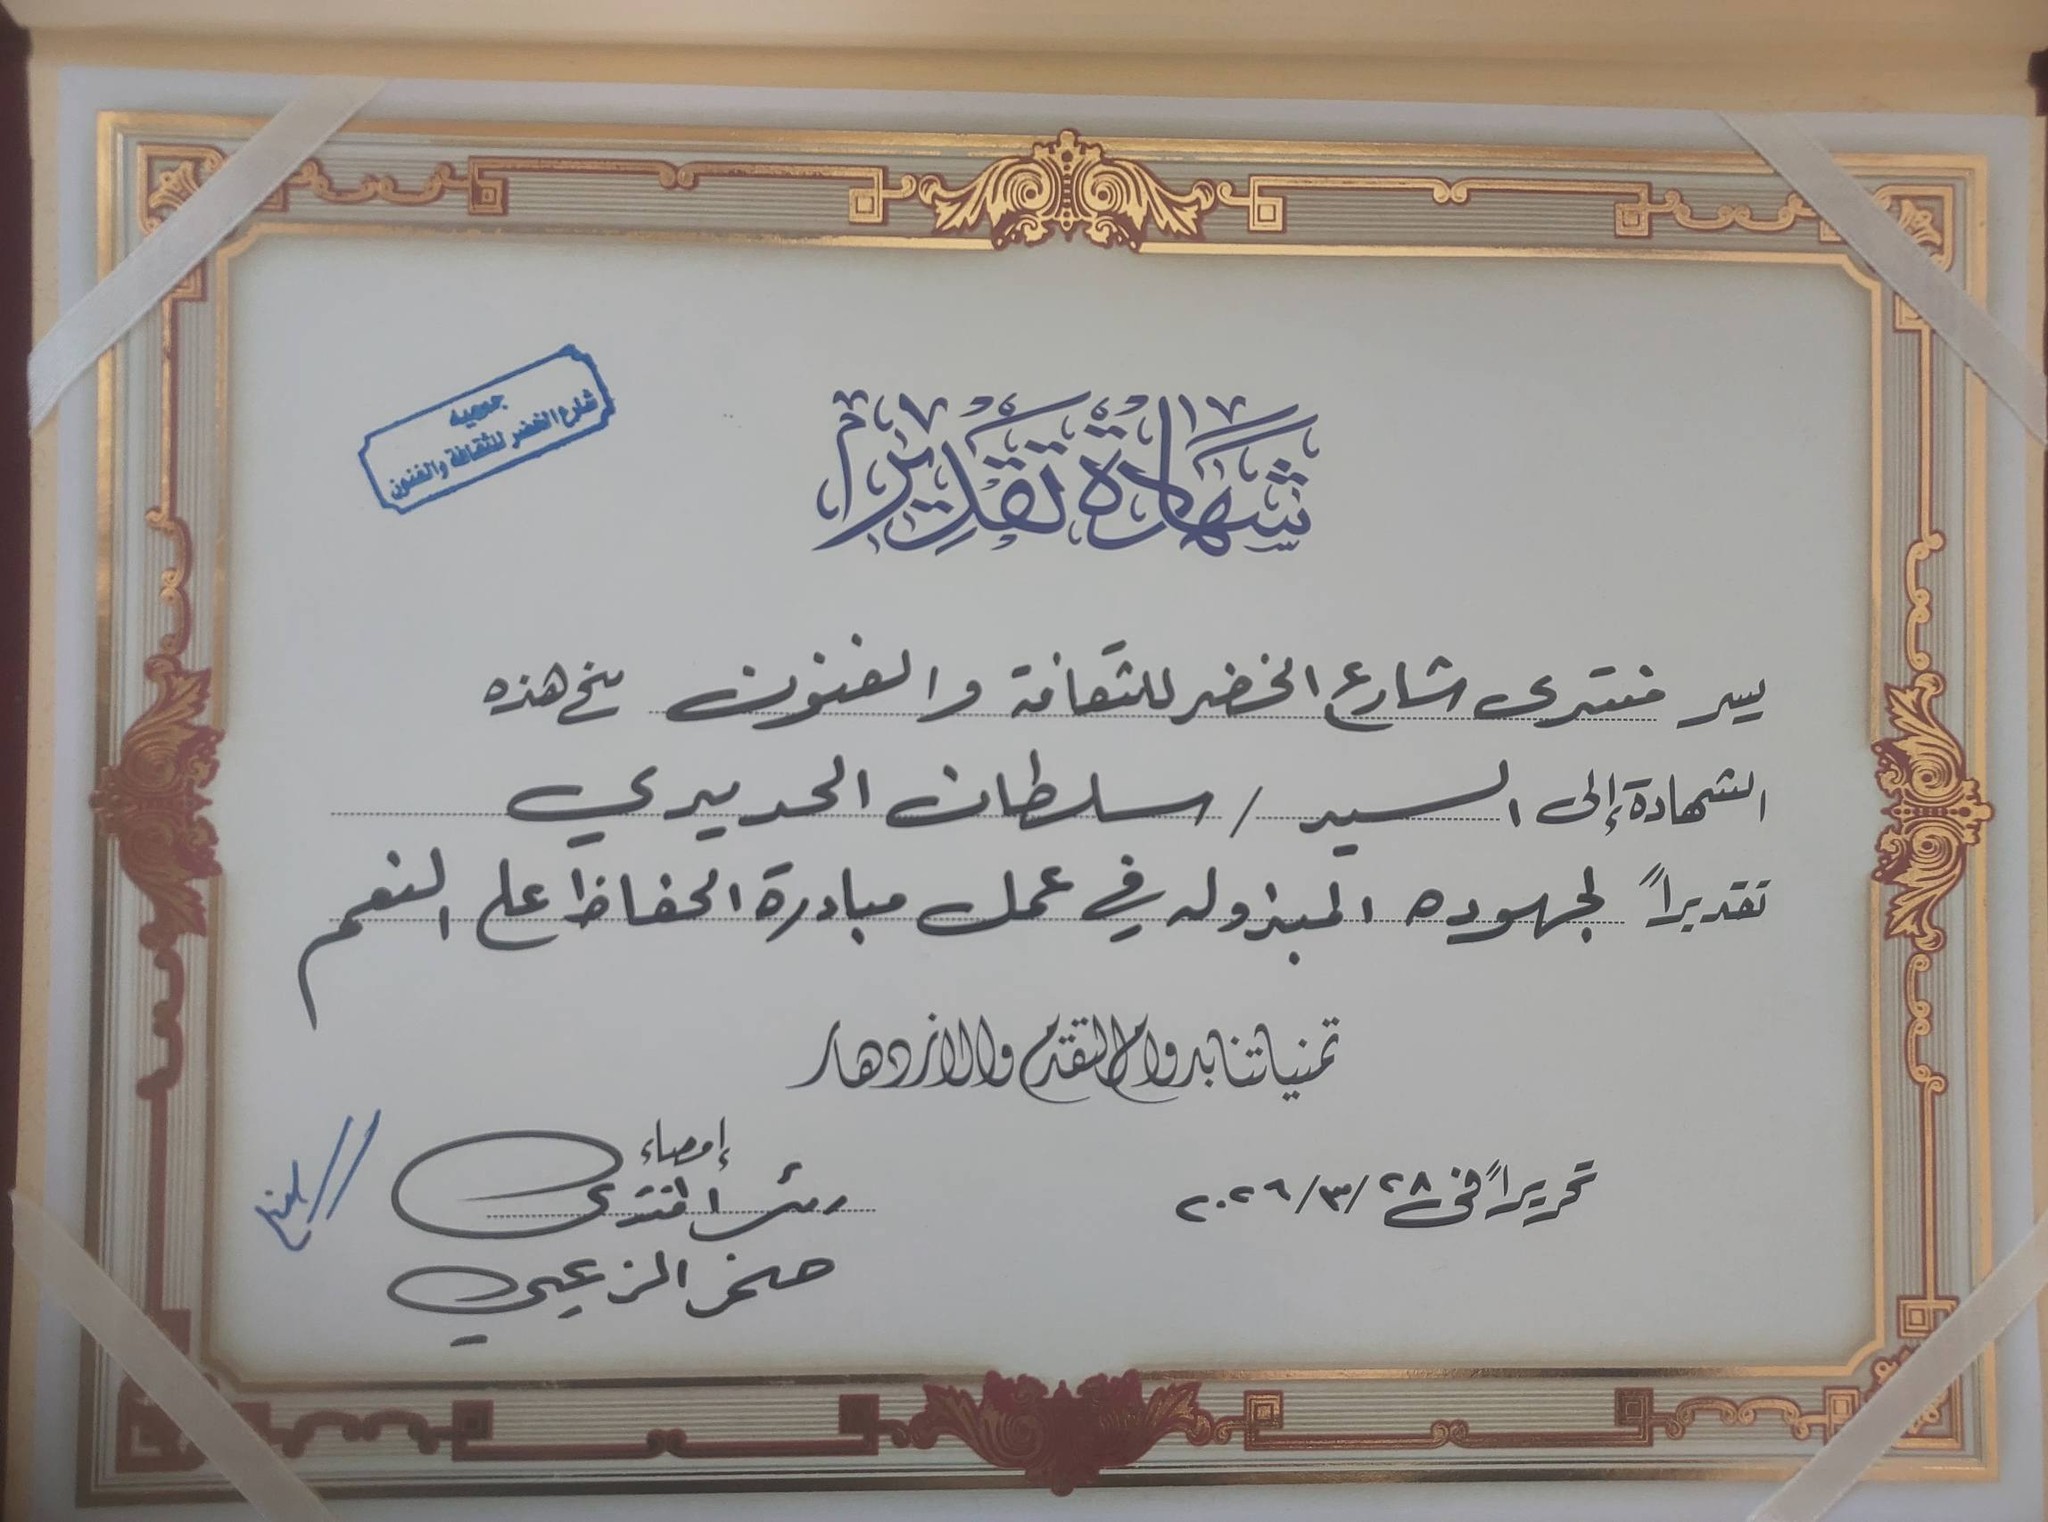 جمعية
شارع الخضر للثقافة والفنون
شهادة تقدير
يسر منتدى شارع الخضر للثقافة والفنون منح هذه
الشهادة إلى السيد / سلطان الحديدي
تقديراً لجهوده المبذوله في عمل مبادرة الحفاظ على النعم
تمنياتنا بدوام التقدم والازدهار
إمضاء
تحريراً فى ٢٨/٣/٢٠٢٦
رئيس المنتدى
صخر الزعبي